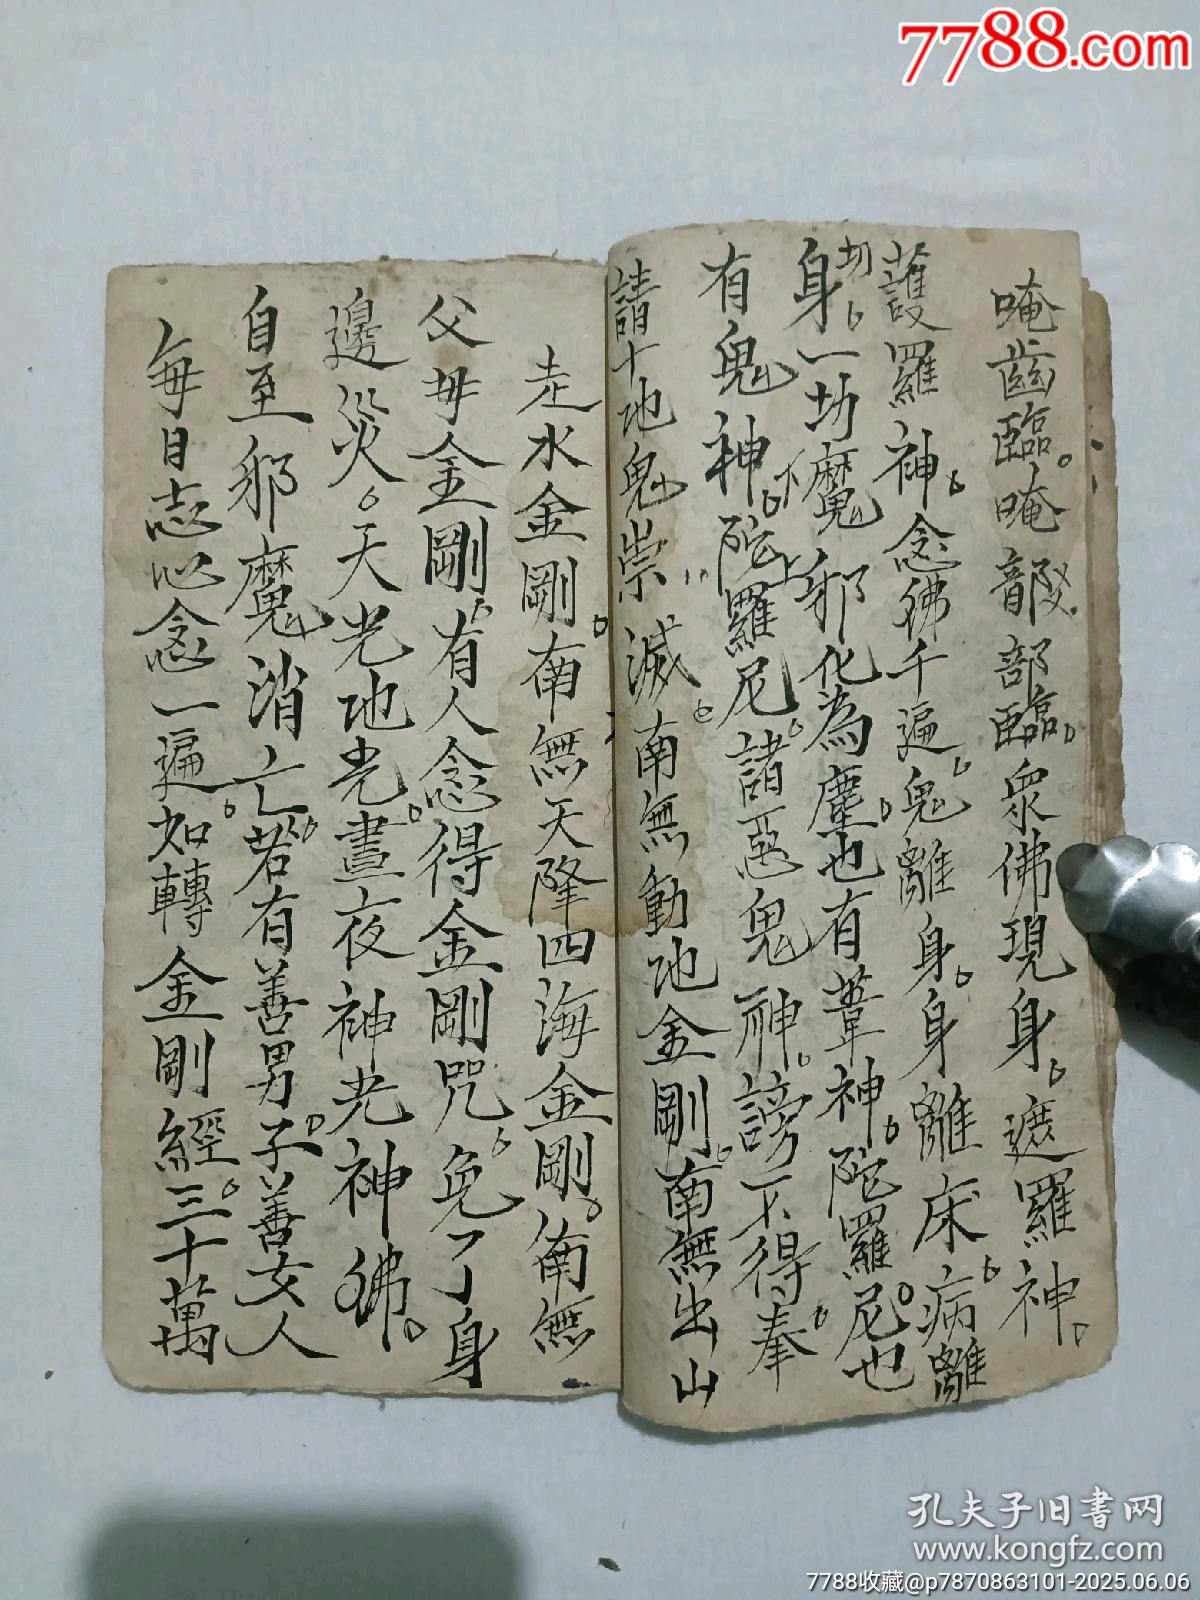 7788.com
唵齒臨。唵部臨衆佛現身。遮羅神。
護羅神。念佛千遍。鬼離身。身離床。病離
身一切魔邪化為塵也有韋神。陀羅尼也
切
有鬼神。陀羅尼。諸惡鬼神。謗不得奉。
下
上
請十地鬼祟滅。南無動地金剛。南無出山
走水金剛。南無天降四海金剛。南無
父母金剛。有人念得金剛咒。免了身
邊災。天光地光。晝夜神光神佛。
自至邪魔消亡。若有善男子。善女人
每日志心念一遍。如轉金剛經。三十萬
孔夫子旧书网
www.kongfz.com
7788收藏@p7870863101-2025.06.06